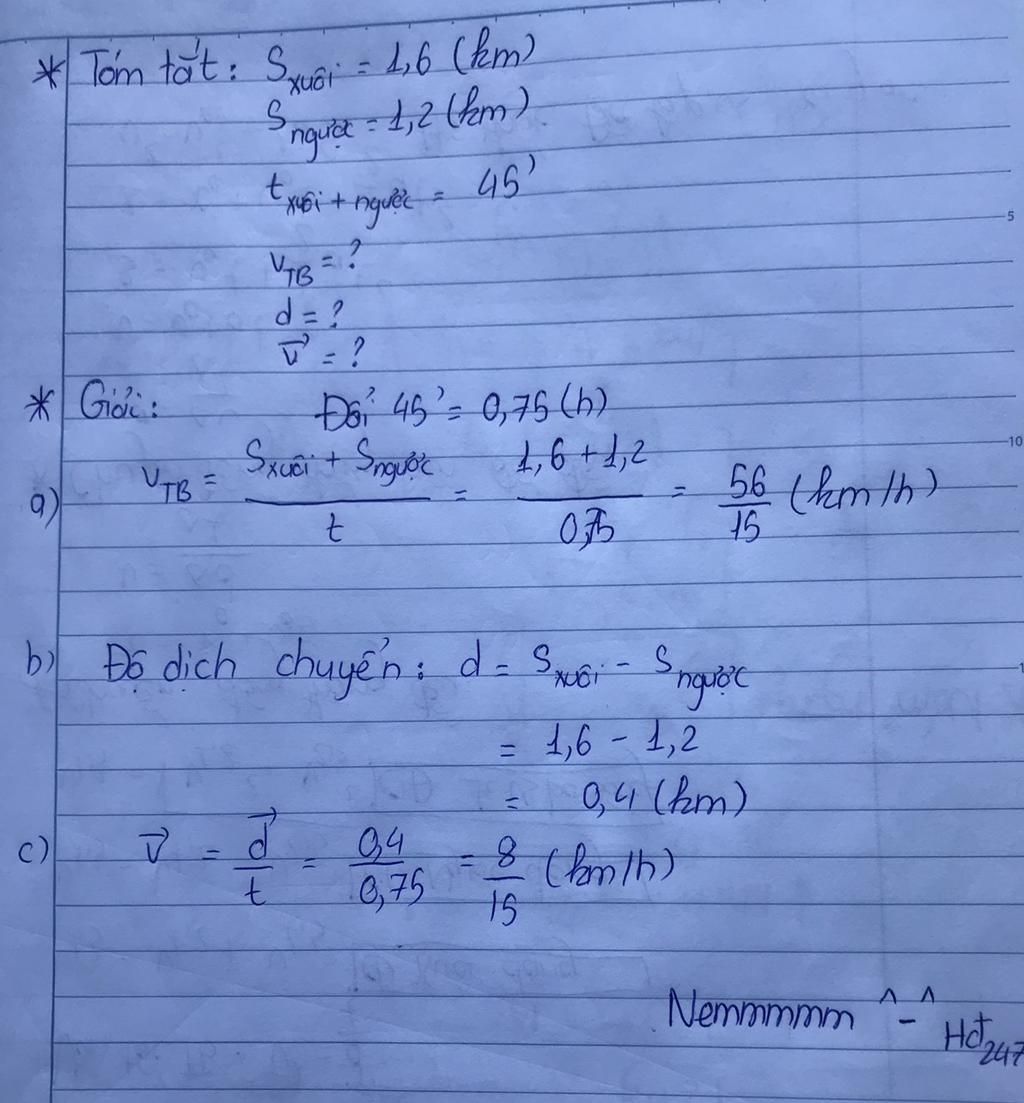 * Tóm tắt: S xuôi = 1,6 (km)
S ngược = 1,2 (km)
t xuôi + ngược = 45'
v TB = ?
d = ?
v⃗ = ?
* Giải: Đổi 45' = 0,75 (h)
a) v TB = (S xuôi + S ngược)/t = (1,6 + 1,2)/0,75 = 56/15 (km/h)
b) Độ dịch chuyển: d = S xuôi - S ngược
= 1,6 - 1,2
= 0,4 (km)
c) v⃗ = d⃗/t = 0,4/0,75 = 8/15 (km/h)
Nemmmmmm ^-^
Hdt247
5
10